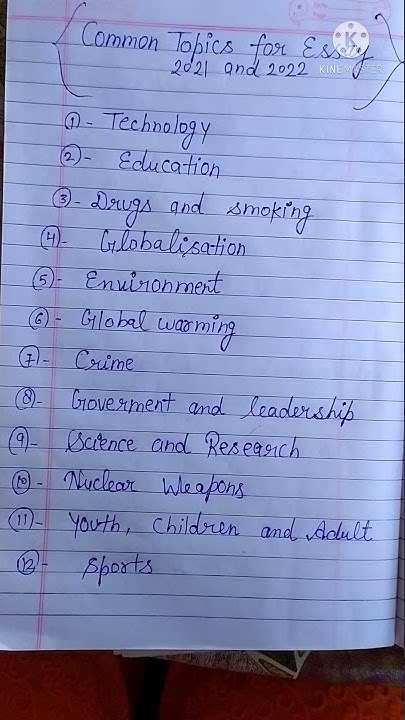 Common Topics for Essay
2021 and 2022
KINEMASTER
①- Technology
②- Education
③- Drugs and smoking
④- Globalisation
⑤- Environment
⑥- Global warming
⑦- Crime
⑧- Goverment and leadership
⑨- Science and Research
⑩- Nuclear Weapons
⑪- Youth, Children and Adult
⑫- Sports